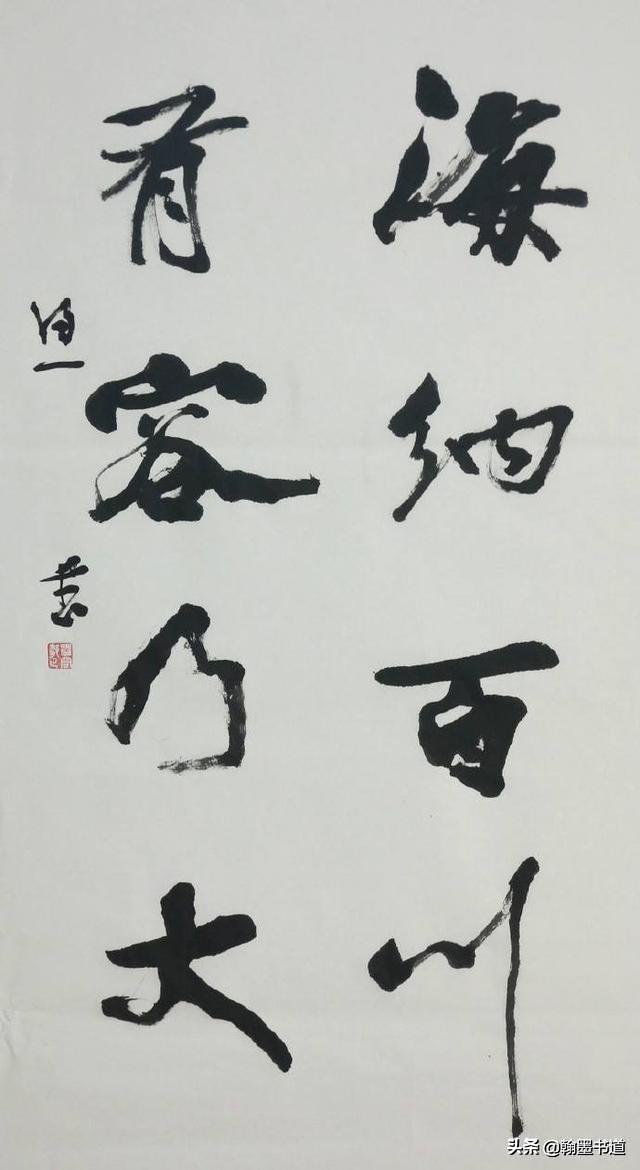 海纳百川
有容乃大
书
头条 @翰墨书道